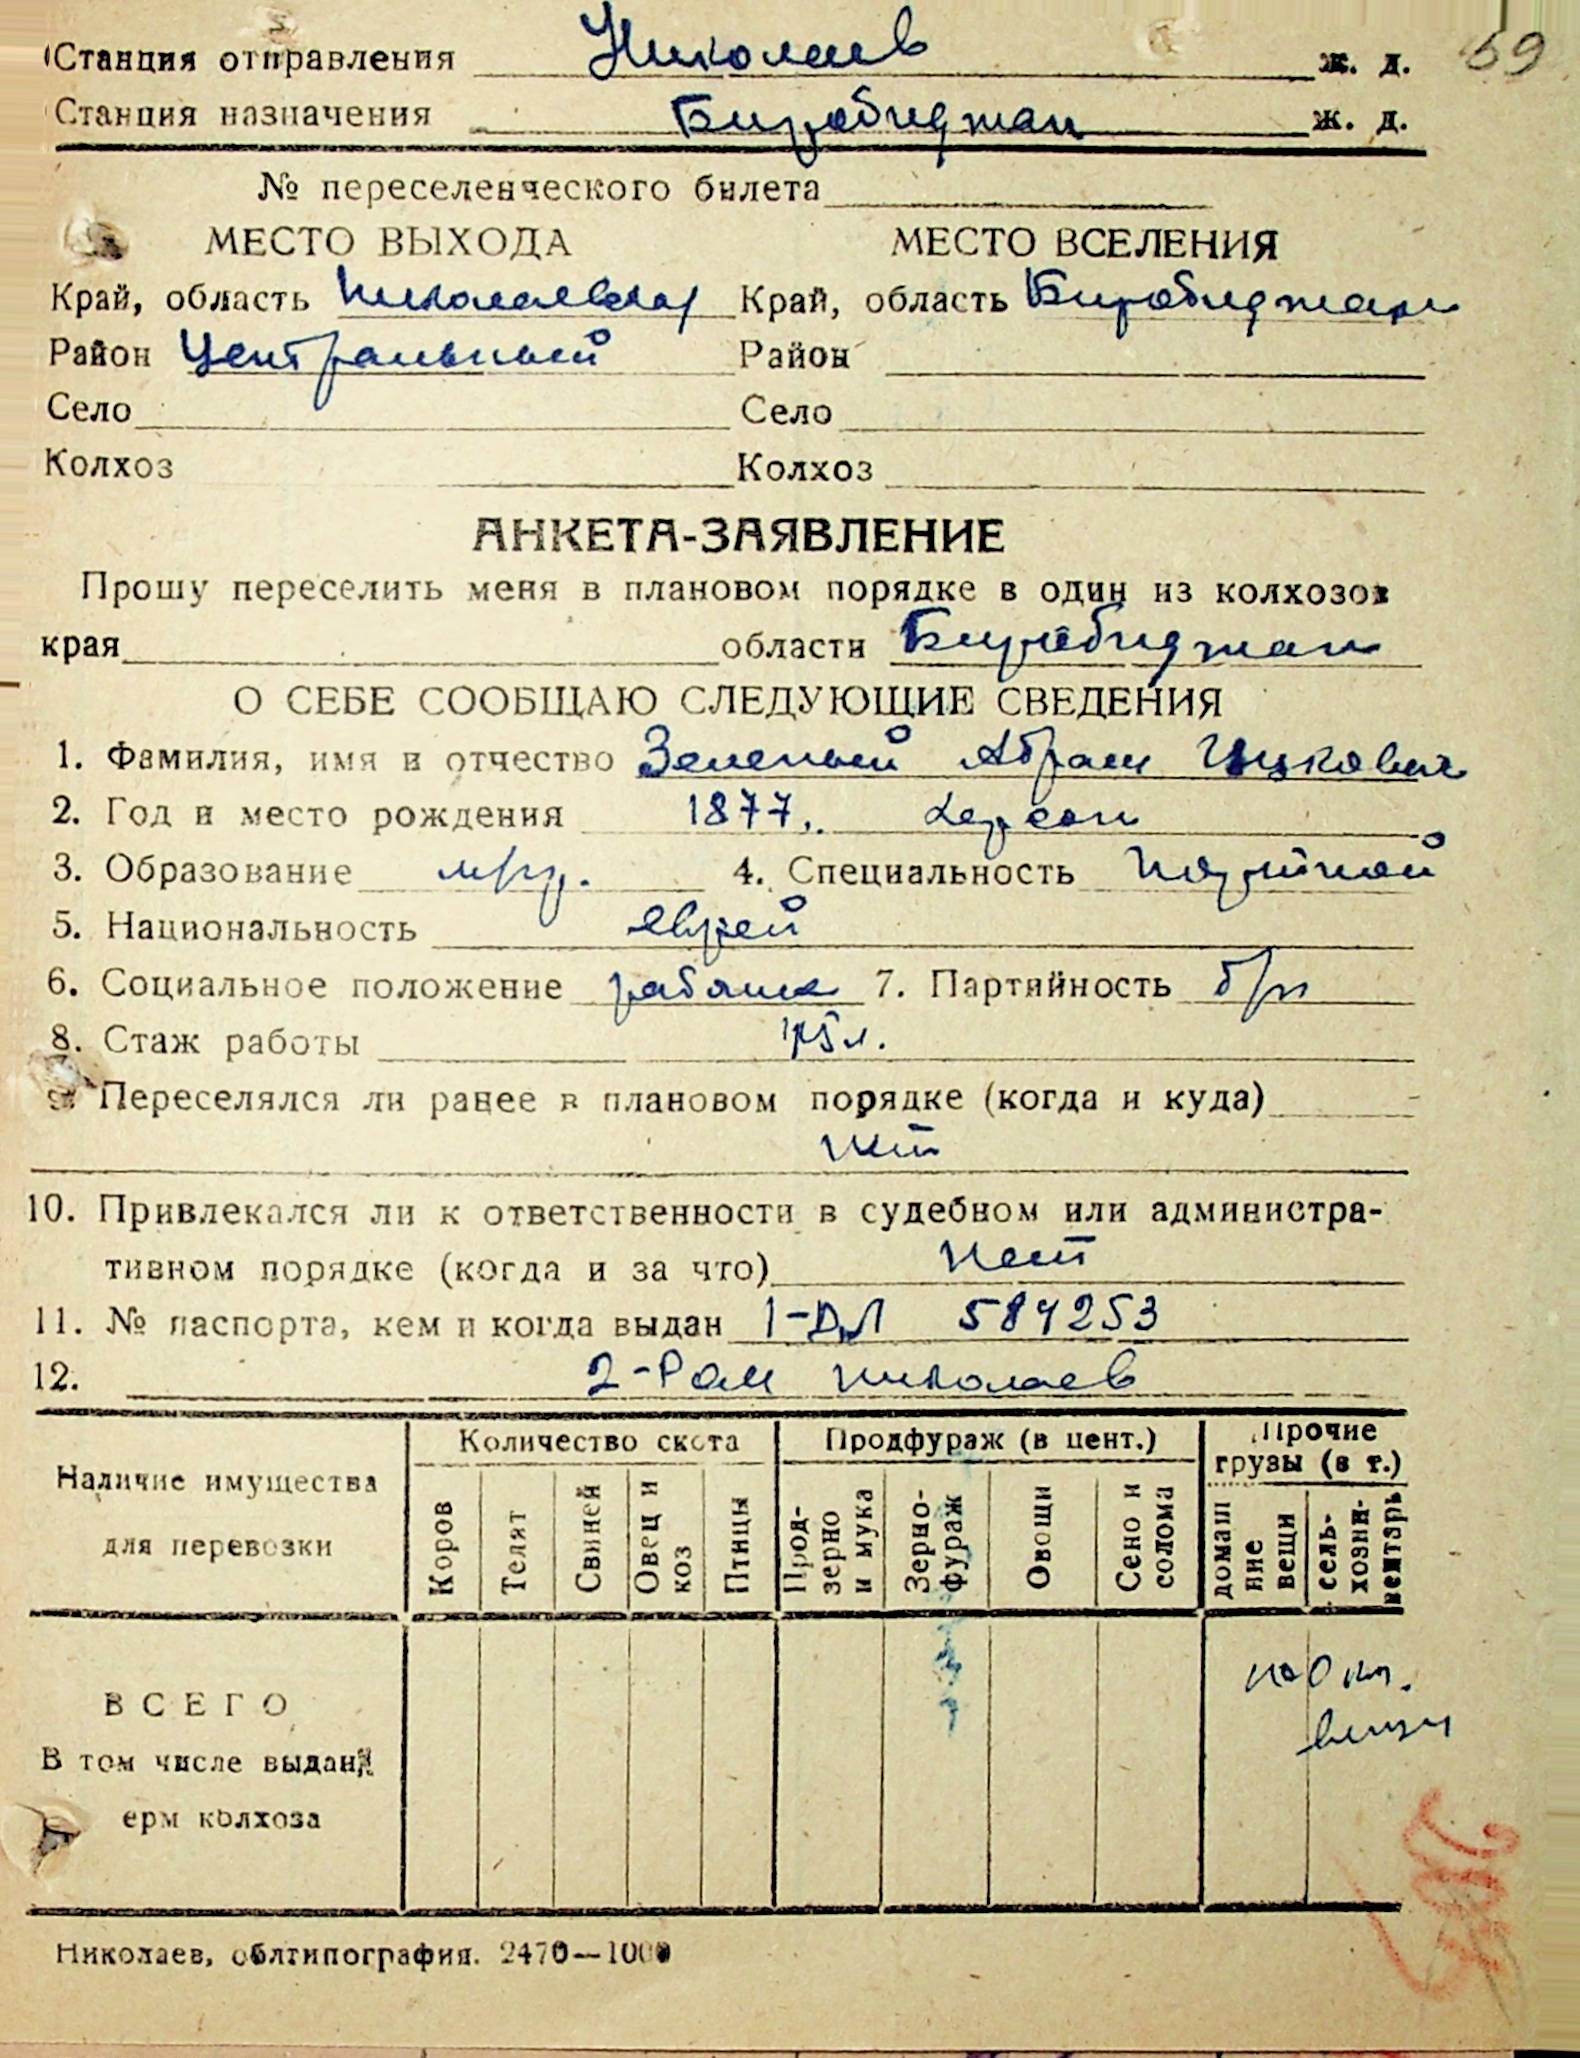 Станция отправления Николаев ж. д. 69
Станция назначения Биробиджан ж. д.
№ переселенческого билета
МЕСТО ВЫХОДА МЕСТО ВСЕЛЕНИЯ
Край, область Николаевская Край, область Биробиджан
Район Центральный Район
Село Село
Колхоз Колхоз
АНКЕТА-ЗАЯВЛЕНИЕ
Прошу переселить меня в плановом порядке в один из колхозов
края области Биробиджан
О СЕБЕ СООБЩАЮ СЛЕДУЮЩИЕ СВЕДЕНИЯ
1. Фамилия, имя и отчество Зеленый Абрам Ицкович
2. Год и место рождения 1877, Херсон
3. Образование м/гр. 4. Специальность портной
5. Национальность еврей
6. Социальное положение 7. Партийность б/п
8. Стаж работы 45 л.
9. Переселялся ли ранее в плановом порядке (когда и куда)
нет
10. Привлекался ли к ответственности в судебном или администра-
тивном порядке (когда и за что) нет
11. № паспорта, кем и когда выдан 1-ДЛ 584253
12. 2-Ром Николаев
Наличие имущества для перевозки
Количество скота
Коров
Телят
Свиней
Овец и коз
Птицы
Продфураж (в цент.)
Прод-зерно и мука
Зерно-фураж
Овощи
Сено и солома
Прочие грузы (в т.)
домашние вещи
сель-хозинвентарь
ВСЕГО
вещи
В том числе выдан
ерм колхоза
Николаев, облтипография. 2470—1000